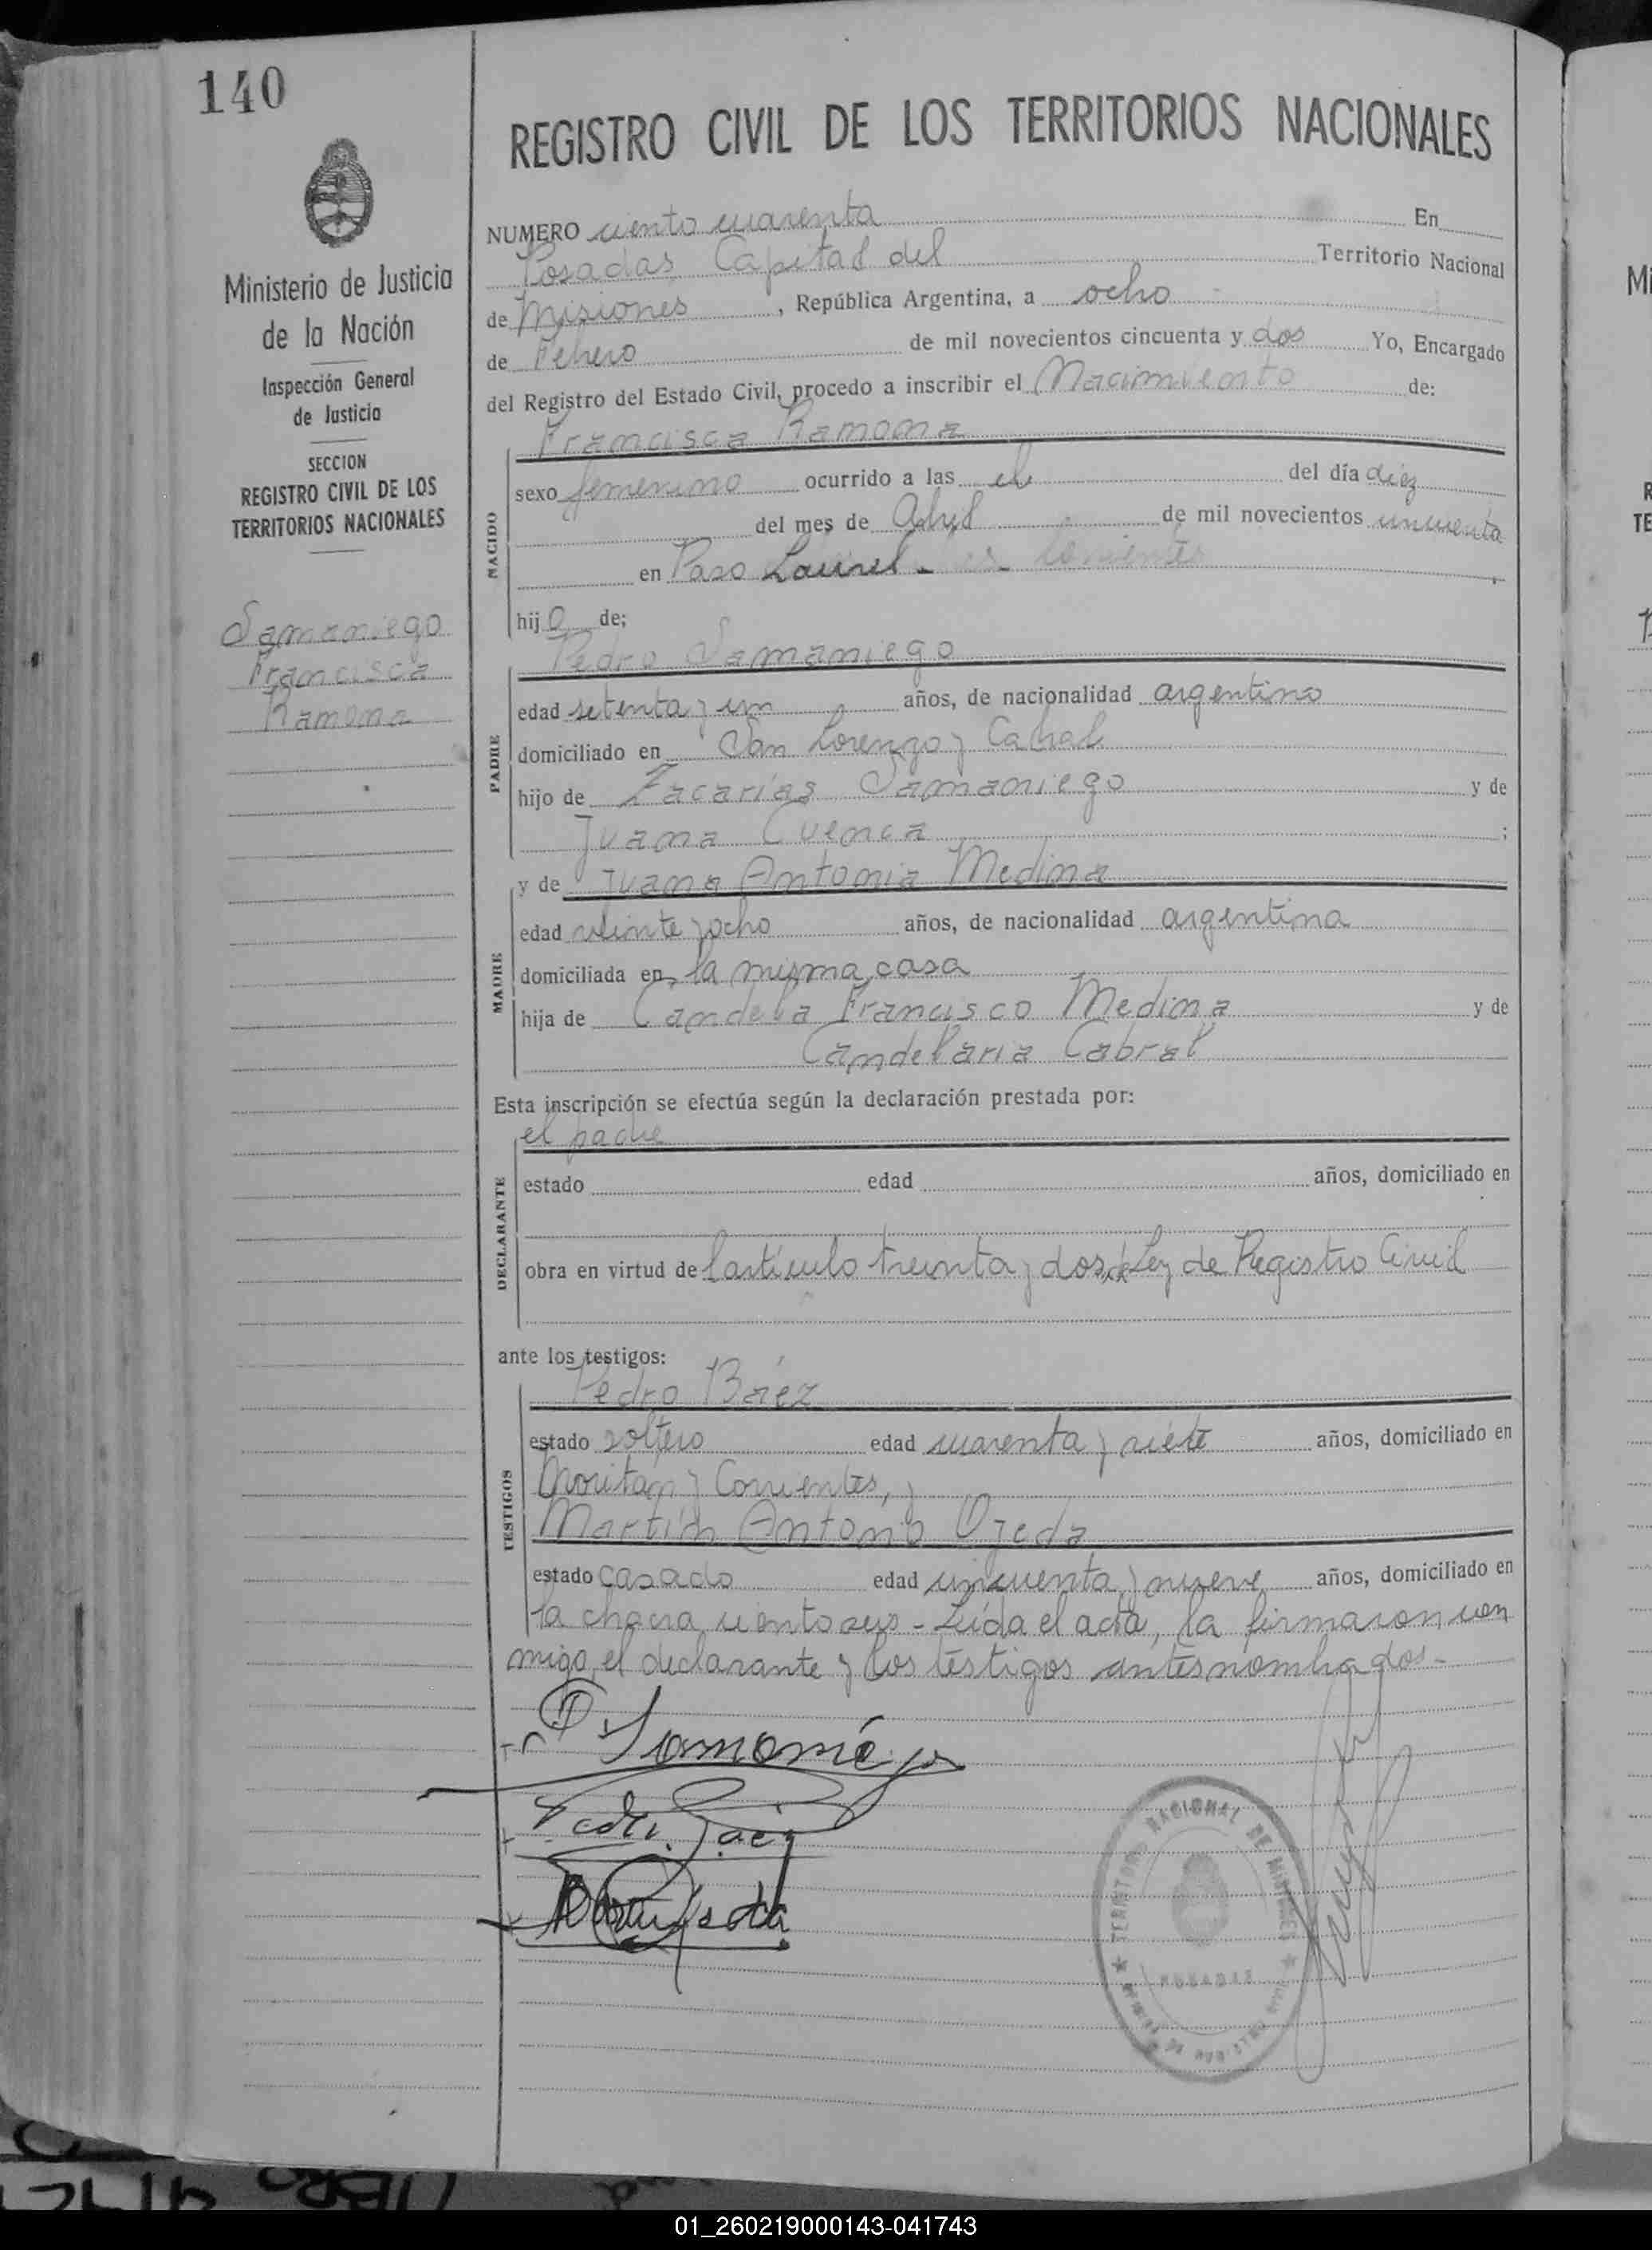 140
REGISTRO CIVIL DE LOS TERRITORIOS NACIONALES
Ministerio de Justicia
de la Nación
Inspección General
de Justicia
SECCION
REGISTRO CIVIL DE LOS
TERRITORIOS NACIONALES
Samaniego
Francisca
Ramona
NUMERO ciento cuarenta En
Posadas Capital del Territorio Nacional
de Misiones, República Argentina, a ocho
de Febrero de mil novecientos cincuenta y dos Yo, Encargado
del Registro del Estado Civil, procedo a inscribir el Nacimiento de:
Francisca Ramona
NACIDO
sexo femenino ocurrido a las el del día diez
del mes de Abril de mil novecientos cincuenta
en Paso Laurel - Corrientes
hija de;
Pedro Samaniego
PADRE
edad setenta y un años, de nacionalidad argentino
domiciliado en San Lorenzo y Cabral
hijo de Zacarías Samaniego y de
Juana Cuenca ;
y de Juana Antonia Medina
MADRE
edad veinte y ocho años, de nacionalidad argentina
domiciliada en la misma casa
hija de Candela Francisco Medina y de
Candelaria Cabral
Esta inscripción se efectúa según la declaración prestada por:
el padre
DECLARANTE
estado edad años, domiciliado en
obra en virtud del artículo treinta y dos de Ley de Registro Civil
ante los testigos:
Pedro Báez
TESTIGOS
estado soltero edad cuarenta y siete años, domiciliado en
y Corrientes, y
Martín Antonio Ojeda
estado casado edad cincuenta y nueve años, domiciliado en
la chacra ciento seis - Leída el acta, la firmaron con
migo, el declarante y los testigos antes nombrados.-
P Samaniego
Pedro Báez
TERRITORIO NACIONAL DE MISIONES
POSADAS
01_260219000143-041743